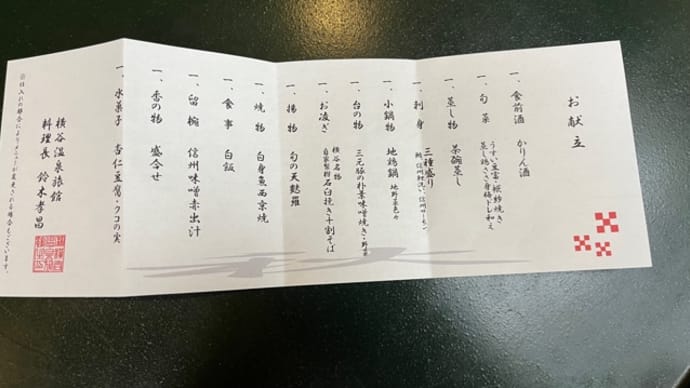 お献立
一、食前酒 かりん酒
一、旬菜 うすい豆富・袱紗焼き
蒸し鶏ささ身梅ドレ和え
一、蒸し物 茶碗蒸し
一、刺身 三種盛り
鯉、信州紅洗い、信州サーモン
一、小鍋物 地鶏鍋 地野菜色々
一、台の物 三元豚の朴葉味噌焼き・野菜
一、お凌ぎ 横谷名物
自家製粉石臼挽き十割そば
一、揚物 旬の天麩羅
一、焼物 白身魚西京焼
一、食事 白飯
一、留椀 信州味噌赤出汁
一、香の物 盛合せ
一、水菓子 杏仁豆腐・クコの実
横谷温泉旅館
料理長 鈴木孝昌
※仕入れの都合によりメニューが変更される場合もございます。